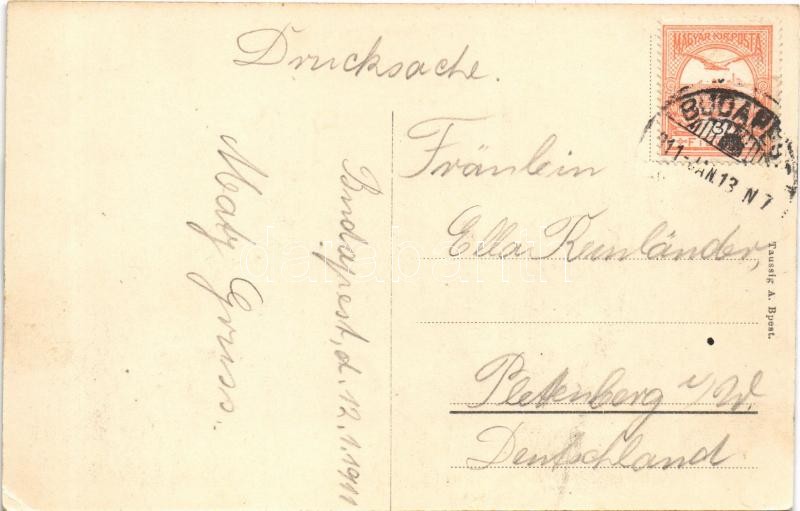 Drucksache.
MAGYAR KIR. POSTA
BUDAPEST
911 JAN. 13 N 7
Budapest, d. 12.1.1911
Gruss.
Fräulein
Ella
Plettenberg i/W.
Deutschland
Taussig A. Bpest.
darabanth